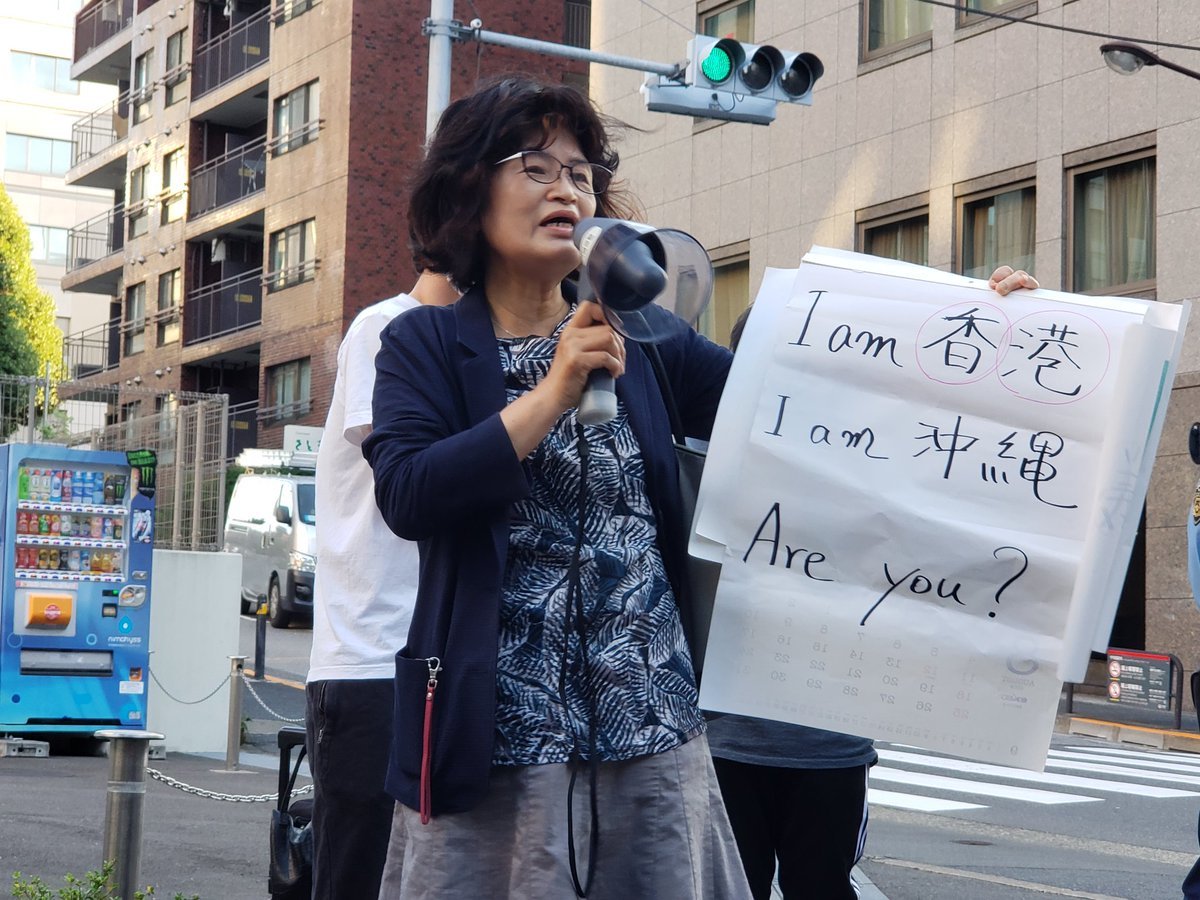 I am 香港
I am 沖縄
Are you?